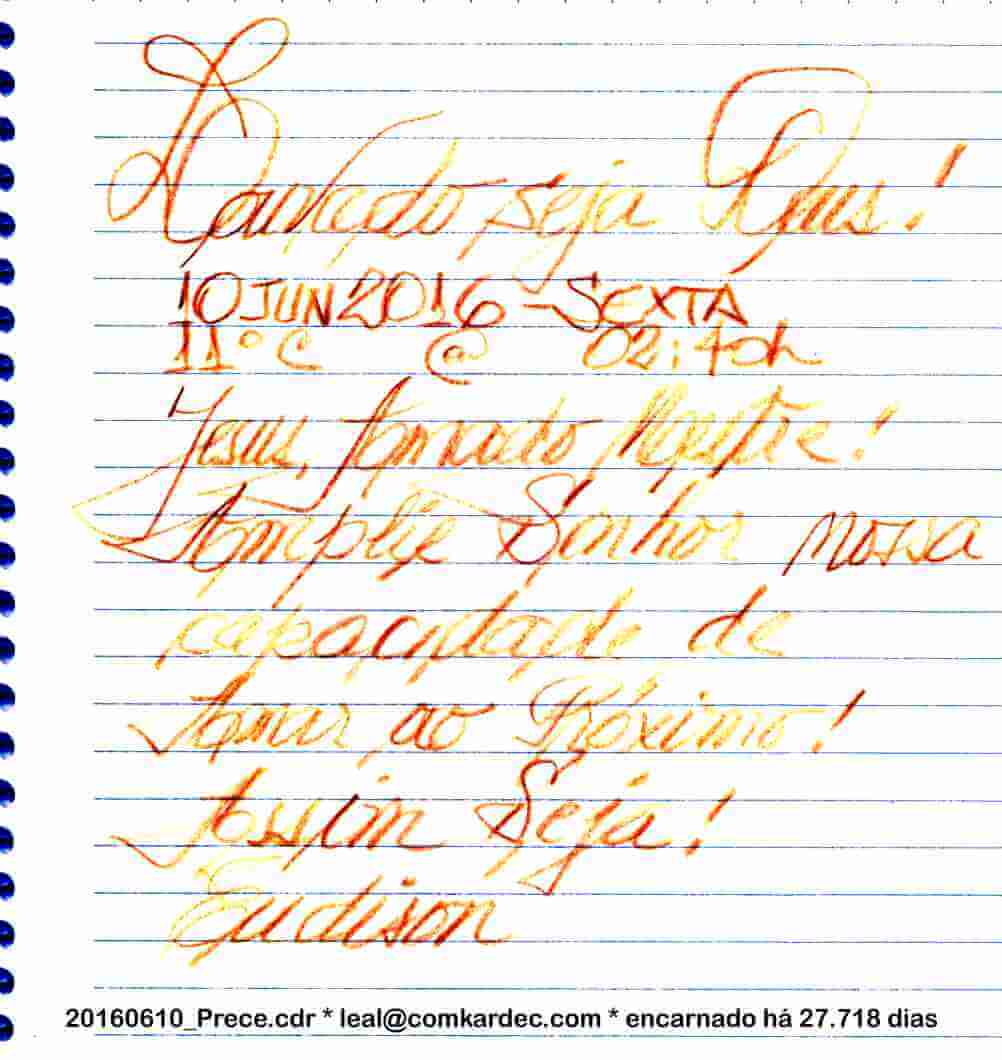 Louvado seja Deus!
10JUN2016-SEXTA
11°C @ 02:40h
Jesus, Amado Mestre!
Amplie Senhor nossa
capacidade de
Amar ao Próximo!
Assim Seja!
Eudison
20160610_Prece.cdr * leal@comkardec.com * encarnado há 27.718 dias